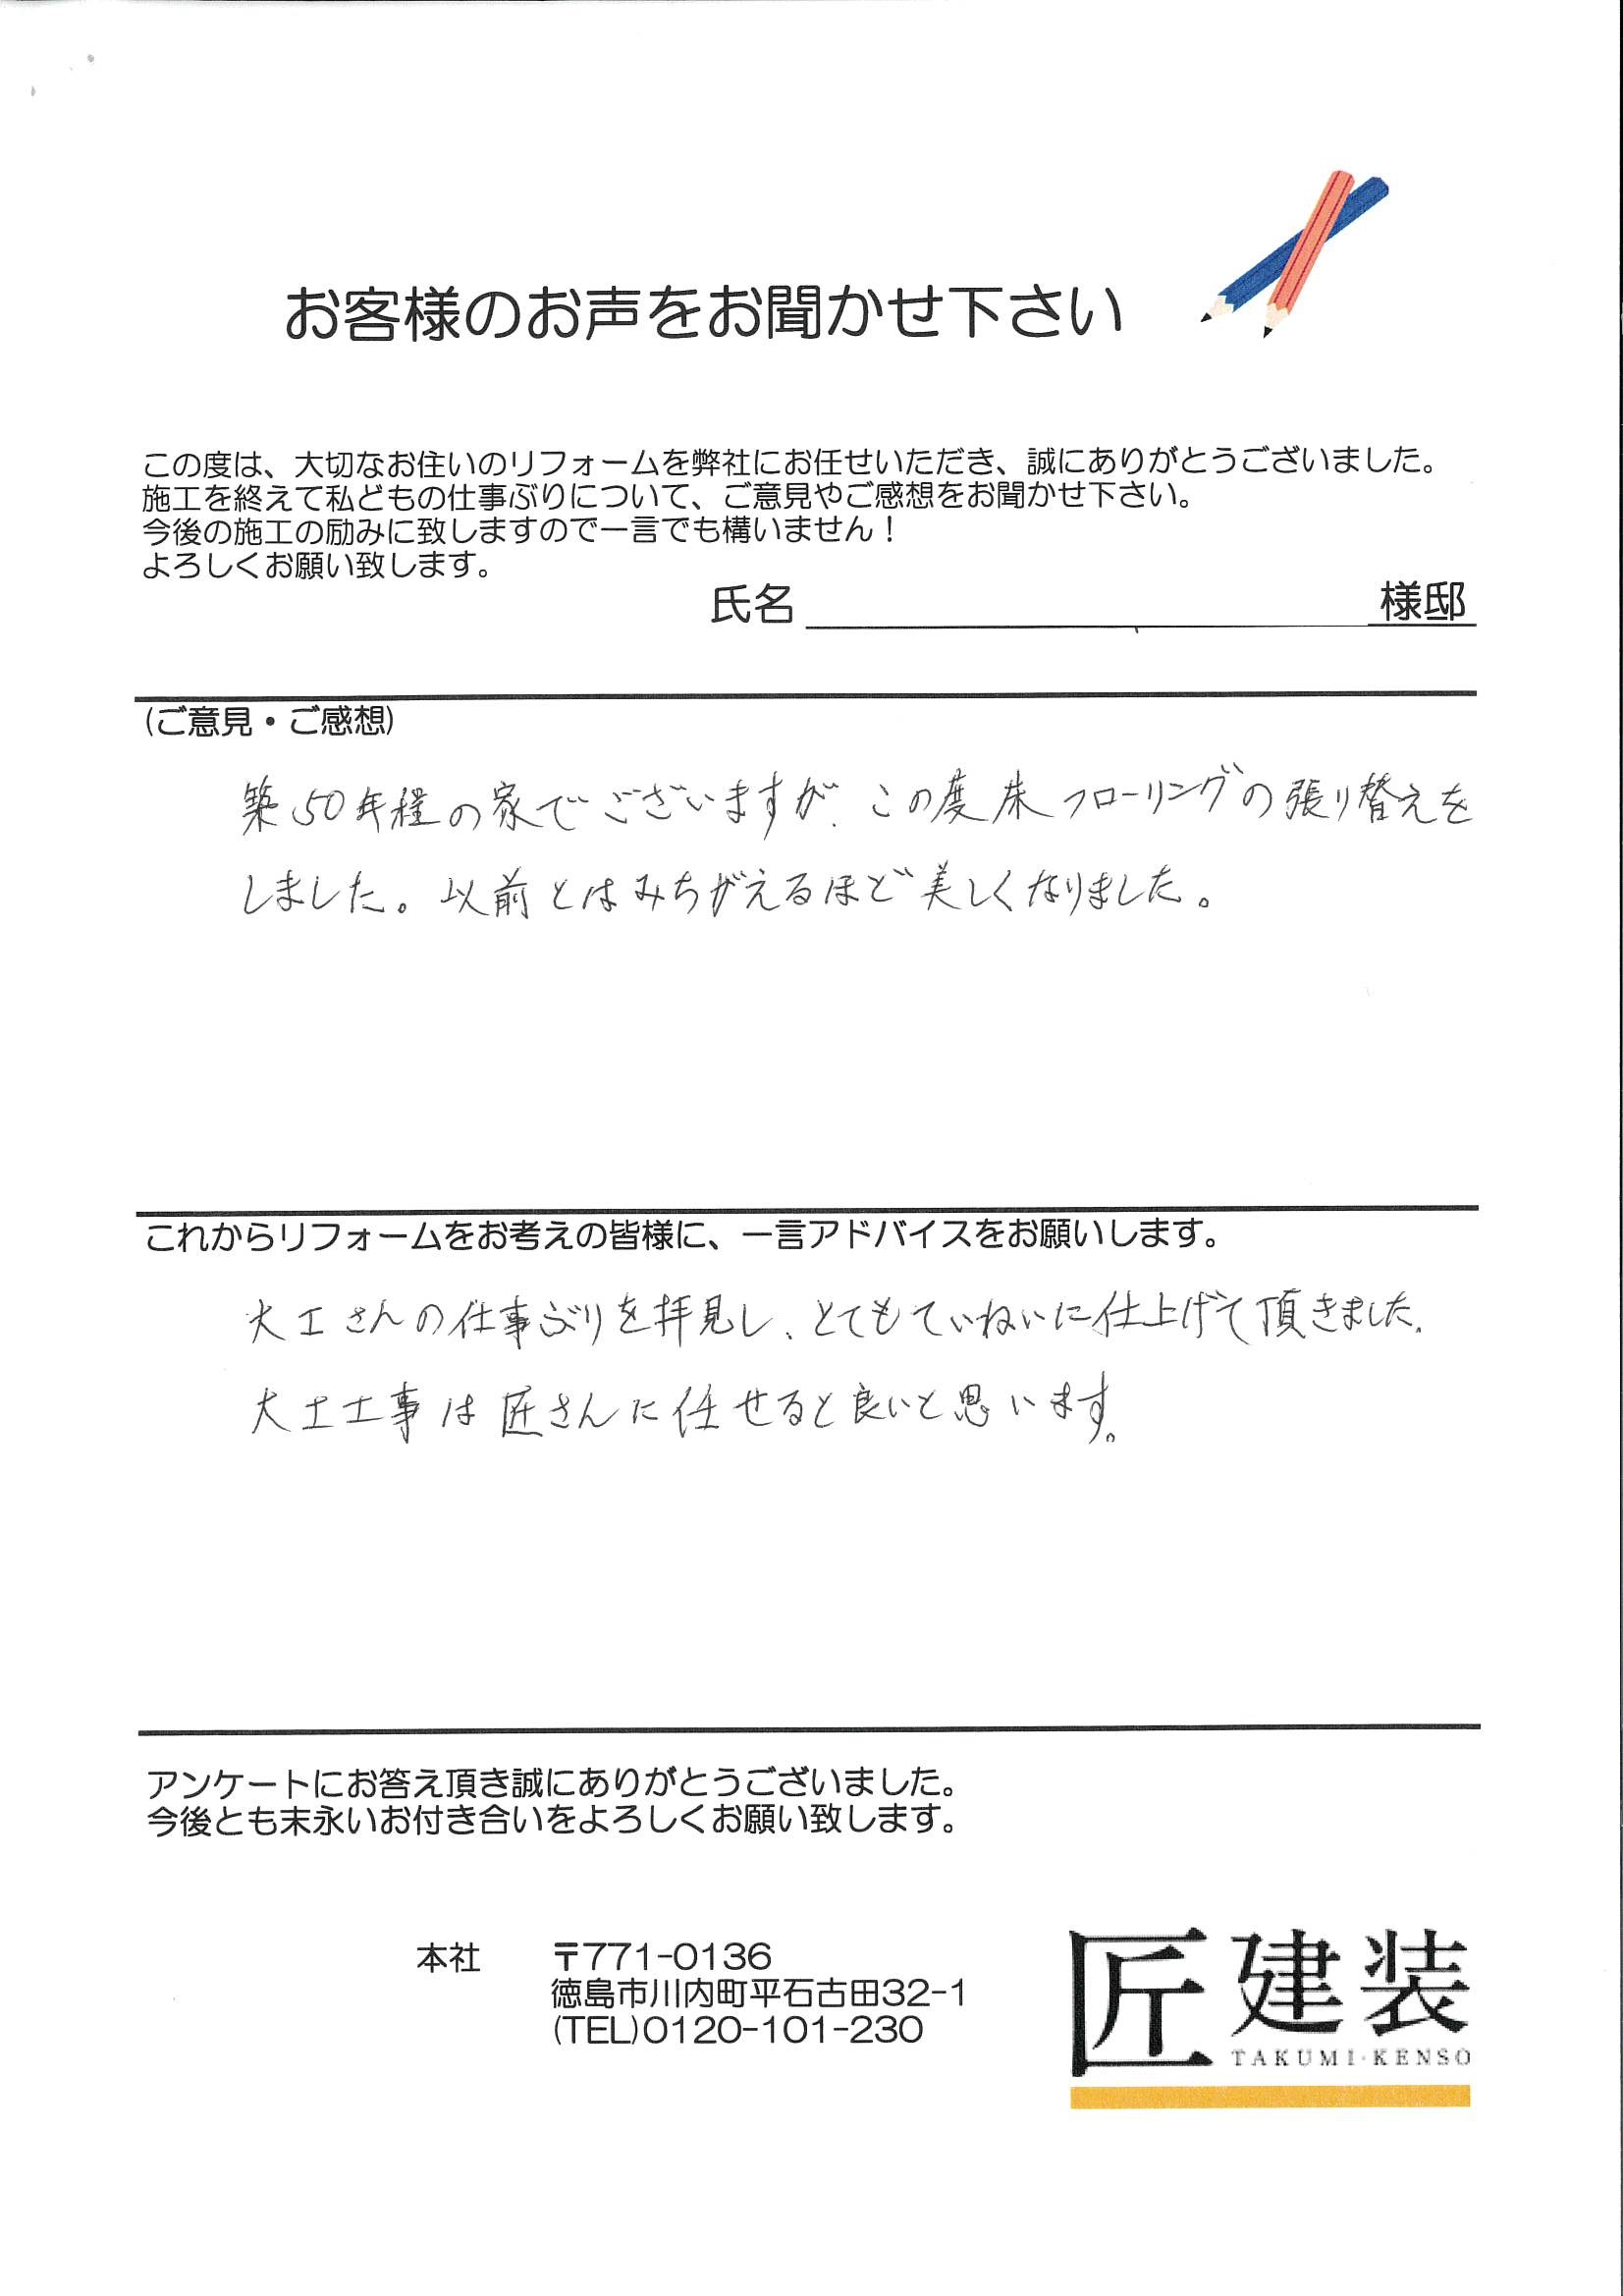 お客様のお声をお聞かせ下さい
この度は、大切なお住いのリフォームを弊社にお任せいただき、誠にありがとうございました。
施工を終えて私どもの仕事ぶりについて、ご意見やご感想をお聞かせ下さい。
今後の施工の励みに致しますので一言でも構いません！
よろしくお願い致します。
氏名 様邸
(ご意見・ご感想)
築50年程の家でございますが、この度床フローリングの張り替えを
しました。以前とはみちがえるほど美しくなりました。
これからリフォームをお考えの皆様に、一言アドバイスをお願いします。
大工さんの仕事ぶりを拝見し、とてもていねいに仕上げて頂きました。
大工工事は匠さんに任せると良いと思います。
アンケートにお答え頂き誠にありがとうございました。
今後とも末永いお付き合いをよろしくお願い致します。
本社 〒771-0136
徳島市川内町平石古田32-1
(TEL)0120-101-230
匠建装
TAKUMI・KENSO